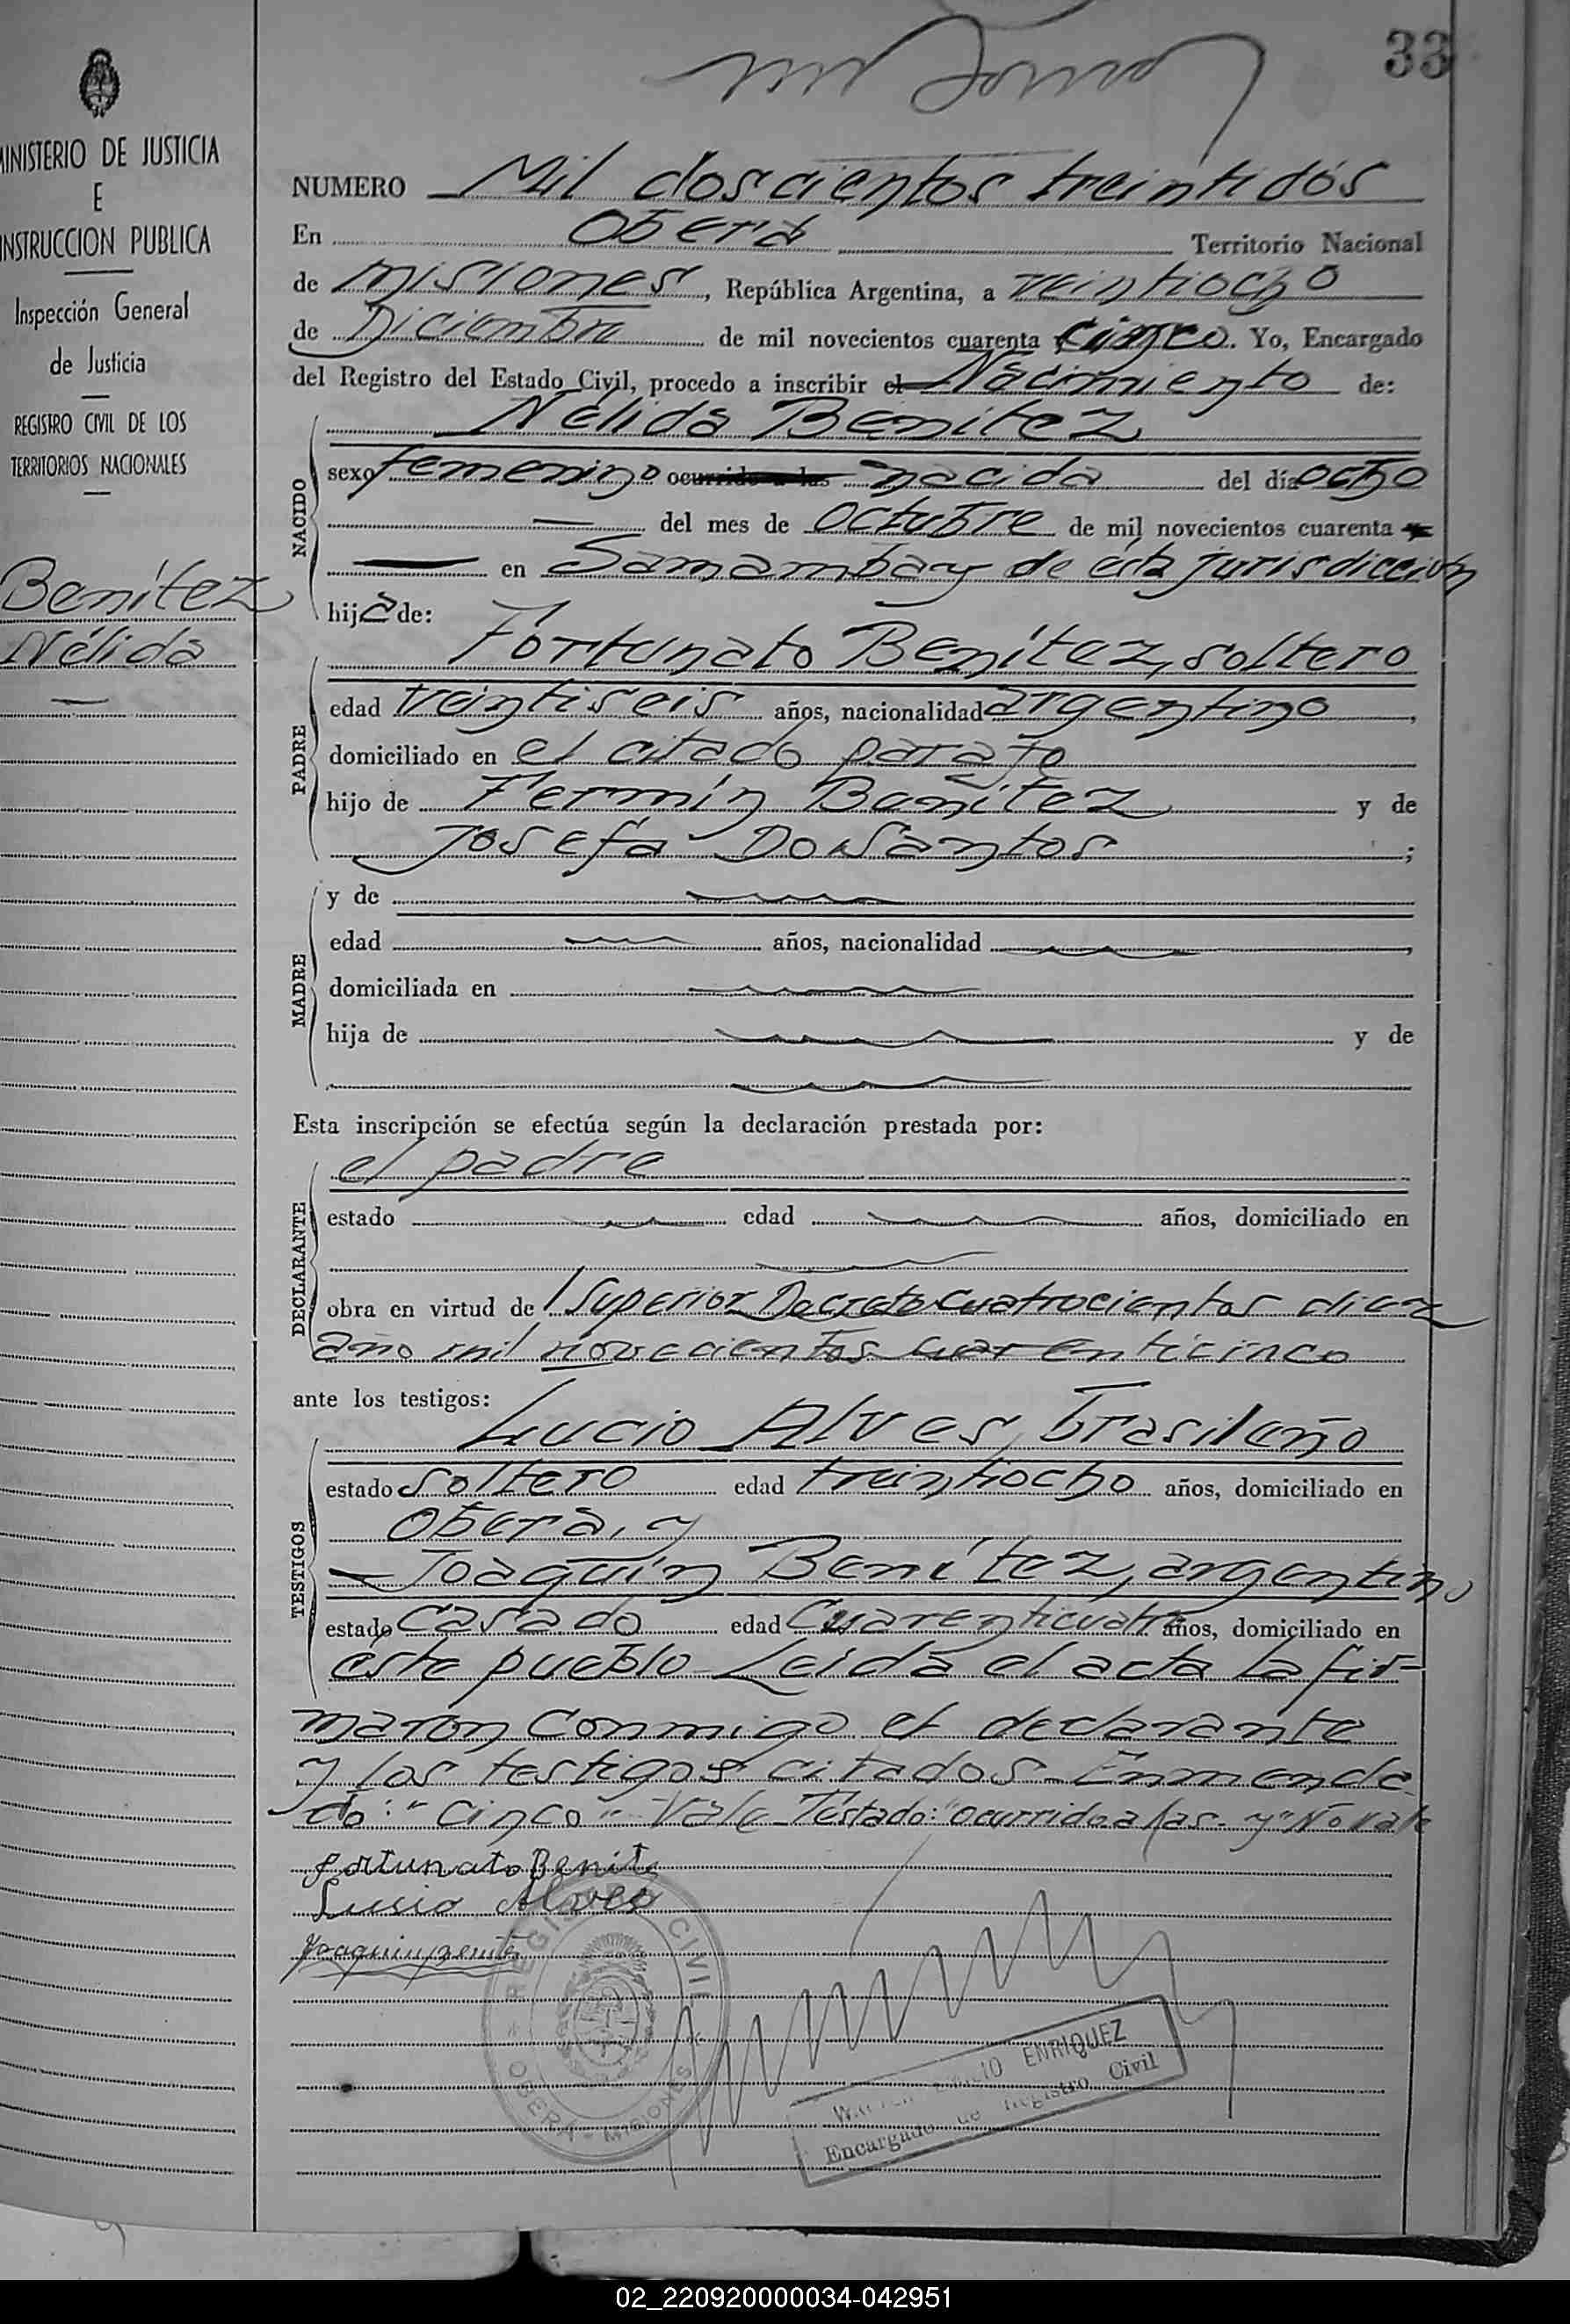 33
MINISTERIO DE JUSTICIA
E
INSTRUCCION PUBLICA
Inspección General
de Justicia
REGISTRO CIVIL DE LOS
TERRITORIOS NACIONALES
Benítez
Nélida
NUMERO Mil doscientos treintidós
En Oberá Territorio Nacional
de Misiones, República Argentina, a veintiocho
de Diciembre de mil novecientos cuarenta cinco. Yo, Encargado
del Registro del Estado Civil, procedo a inscribir el Nacimiento de:
NACIDO
Nélida Benitez
sexo femenino ocurrido a las nacida del día ocho
del mes de Octubre de mil novecientos cuarenta y
en Samambay de ésta jurisdicción
hija de:
PADRE
Fortunato Benítez, soltero
edad veintiseis años, nacionalidad argentino,
domiciliado en el citado paraje
hijo de Fermín Bañitez y de
Josefa Dos Santos;
MADRE
y de
edad años, nacionalidad ,
domiciliada en
hija de y de
Esta inscripción se efectúa según la declaración prestada por:
DECLARANTE
el padre
estado edad años, domiciliado en
obra en virtud de l Superior Decreto cuatrocientos diez
año mil novecientos cuarenticinco
ante los testigos:
TESTIGOS
Lucio Alves, brasileño
estado soltero edad treintiocho años, domiciliado en
Oberá, y
Joaquín Benítez, argentino
estado casado edad cuarenticuatr años, domiciliado en
éste pueblo Leida el acta la fir-
maron conmigo el declarante
y los testigos citados - Enmenda
do: "cinco" - Vale - Testado: "ocurrido a las - y" No vale
fortunato Benite
Lusio Alves
Joaquin benite
REGISTRO CIVIL
OBERA - MISIONES
ENRIQUEZ
Encargado de Registro Civil
02_220920000034-042951